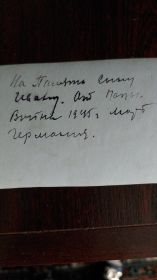 На Память сыну
Ивану. От Папы.
Война 1945г Март
Германия.